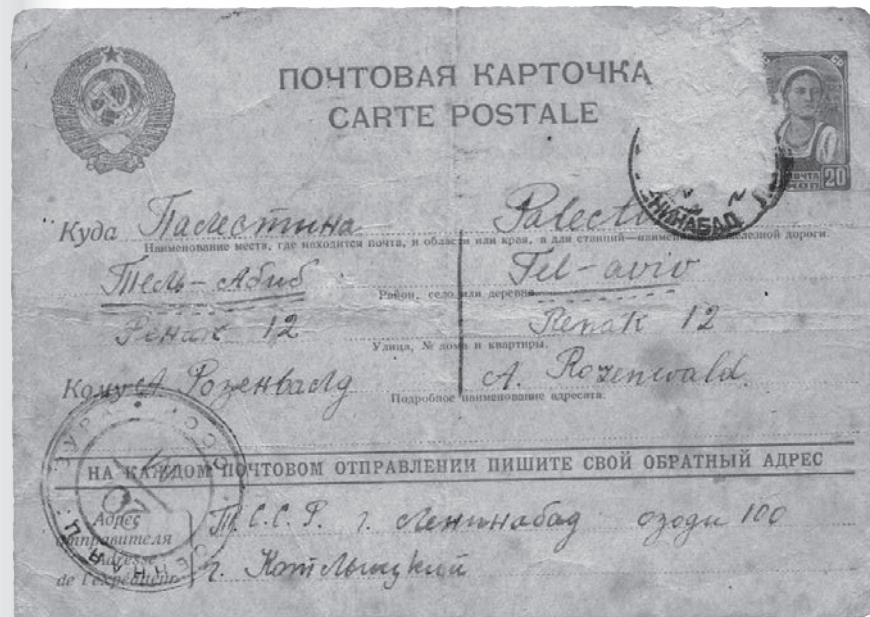 ПОЧТОВАЯ КАРТОЧКА
CARTE POSTALE
ПОЧТА
20
КОП
НИНАБАД
Куда Палестина
Наименование места, где находится почта, и области или края, а для станций—наименование железной дороги.
Тель-Абиб Tel-aviv
Район, село или деревня.
Ренак 12 Renak 12
Улица, № дома и квартиры.
Кому А. Розенвалд A. Rozenwald.
Подробное наименование адресата.
НА КАЖДОМ ПОЧТОВОМ ОТПРАВЛЕНИИ ПИШИТЕ СВОЙ ОБРАТНЫЙ АДРЕС
Адрес
отправителя
Adresse
de l'expéditeur
Т.С.С.Р. г. Ленинабад озоди 100
г. Котлыцкий